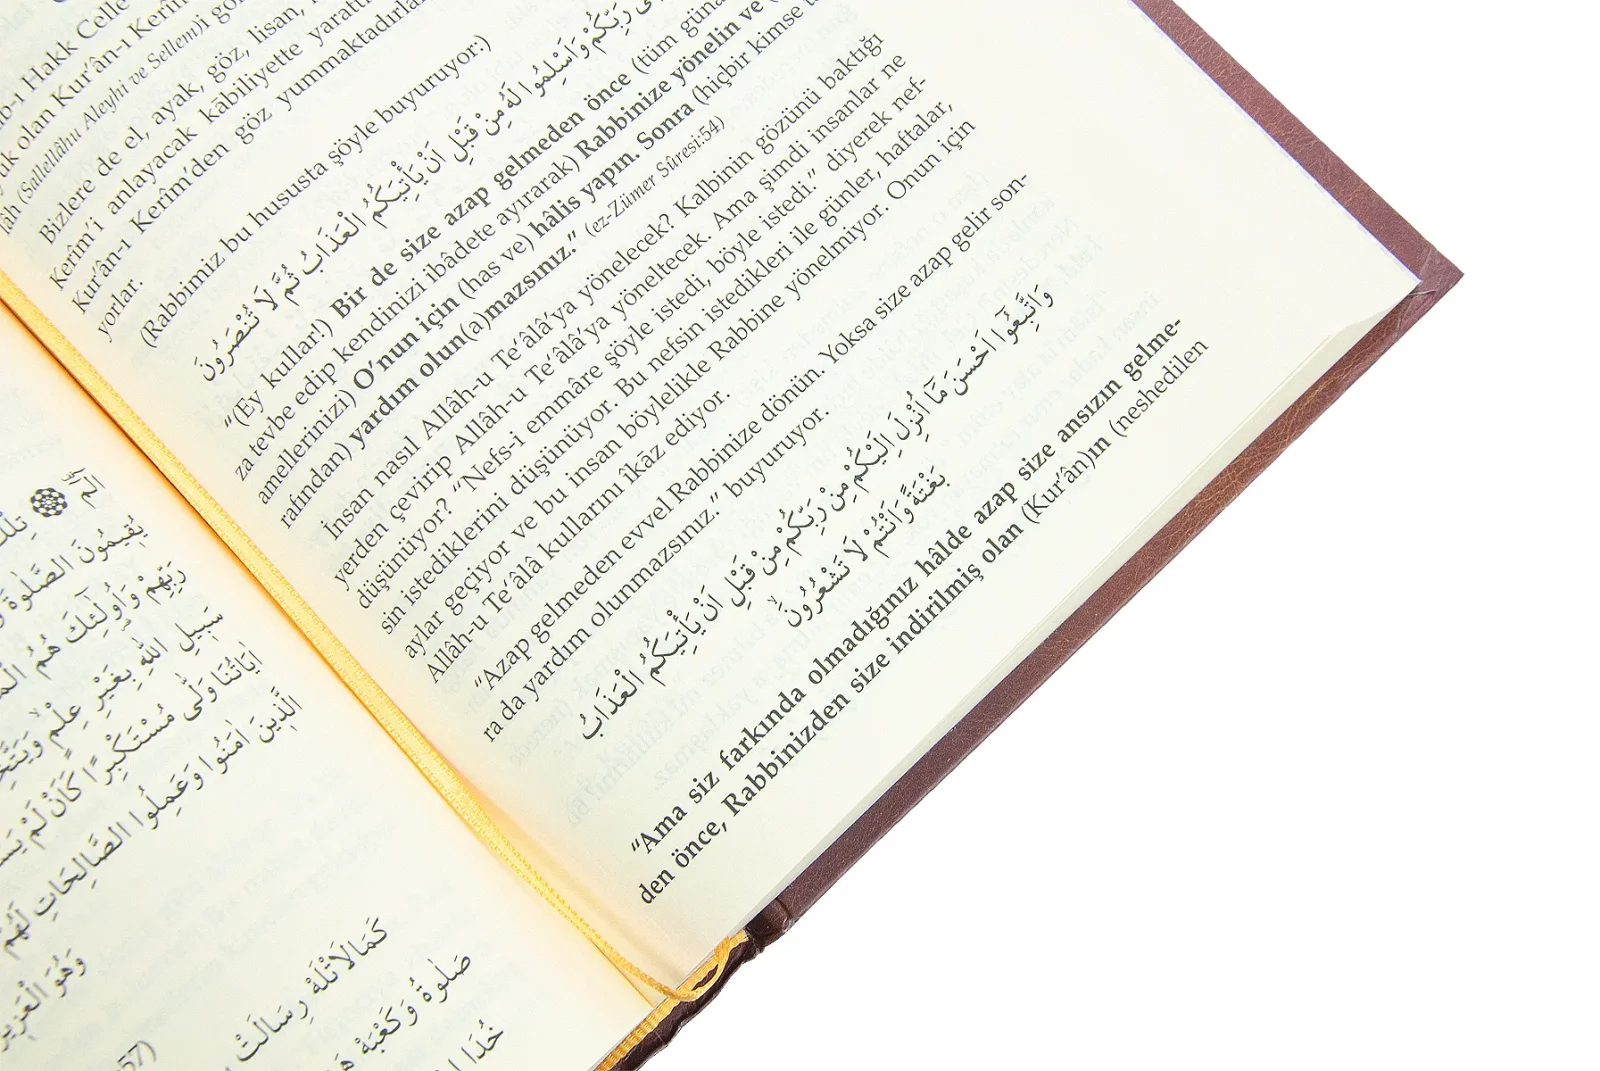 الٓرٰ تِلْكَ
يُقِيمُونَ الصَّلٰوةَ
رَبِّهِمْ وَاُولٰٓئِكَ هُمُ
سَبِيلِ اللّٰهِ بِغَيْرِ عِلْمٍ وَيَتَّخِذَ
اٰيَاتُنَا وَلّٰى مُسْتَكْبِرًا كَاَنْ لَمْ
الَّذِينَ اٰمَنُوا وَعَمِلُوا الصَّالِحَاتِ لَهُمْ
وَهُوَ الْعَزِيزُ
كَمَالَاتْلَهْ رِسَالَتْ
صَلٰوةُ وَكَعْبَهْ
خُدَا
57)
b-ı Hakk Celle
olan Kur'ân-ı Kerîm
lâh (Sallellâhu Aleyhi ve Sellem)i
Bizlere de el, ayak, göz, lisan,
Kerîm'i anlayacak kābiliyette
Kur'ân-ı Kerîm'den göz yummaktadırlar
yorlar.
(Rabbimiz bu hususta şöyle buyuruyor:)
رَبِّكُمْ وَاَسْلِمُوا لَهُ مِنْ قَبْلِ اَنْ يَأْتِيَكُمُ الْعَذَابُ ثُمَّ لَا تُنْصَرُونَ
“(Ey kullar!) Bir de size azap gelmeden önce (tüm
za tevbe edip kendinizi ibâdete ayırarak) Rabbinize yönelin ve
amellerinizi) O'nun için (has ve) hâlis yapın. Sonra (hiçbir kimse
rafından) yardım olun(a)mazsınız.” (ez-Zümer Sûresi:54)
İnsan nasıl Allâh-u Te'âlâ'ya yönelecek? Kalbinin gözünü baktığı
yerden çevirip Allâh-u Te'âlâ'ya yöneltecek. Ama şimdi insanlar ne
düşünüyor? “Nefs-i emmâre şöyle istedi, böyle istedi.” diyerek nef-
sin istediklerini düşünüyor. Bu nefsin istedikleri ile günler, haftalar,
aylar geçiyor ve bu insan böylelikle Rabbine yönelmiyor. Onun için
Allâh-u Te'âlâ kullarını îkāz ediyor.
“Azap gelmeden evvel Rabbinize dönün. Yoksa size azap gelir son-
ra da yardım olunmazsınız.” buyuruyor.
وَاتَّبِعُوا اَحْسَنَ مَا اُنْزِلَ اِلَيْكُمْ مِنْ رَبِّكُمْ مِنْ قَبْلِ اَنْ يَأْتِيَكُمُ الْعَذَابُ
بَغْتَةً وَاَنْتُمْ لَا تَشْعُرُونَ
“Ama siz farkında olmadığınız hâlde azap size ansızın gelme-
den önce, Rabbinizden size indirilmiş olan (Kur'ân)ın (neshedilen